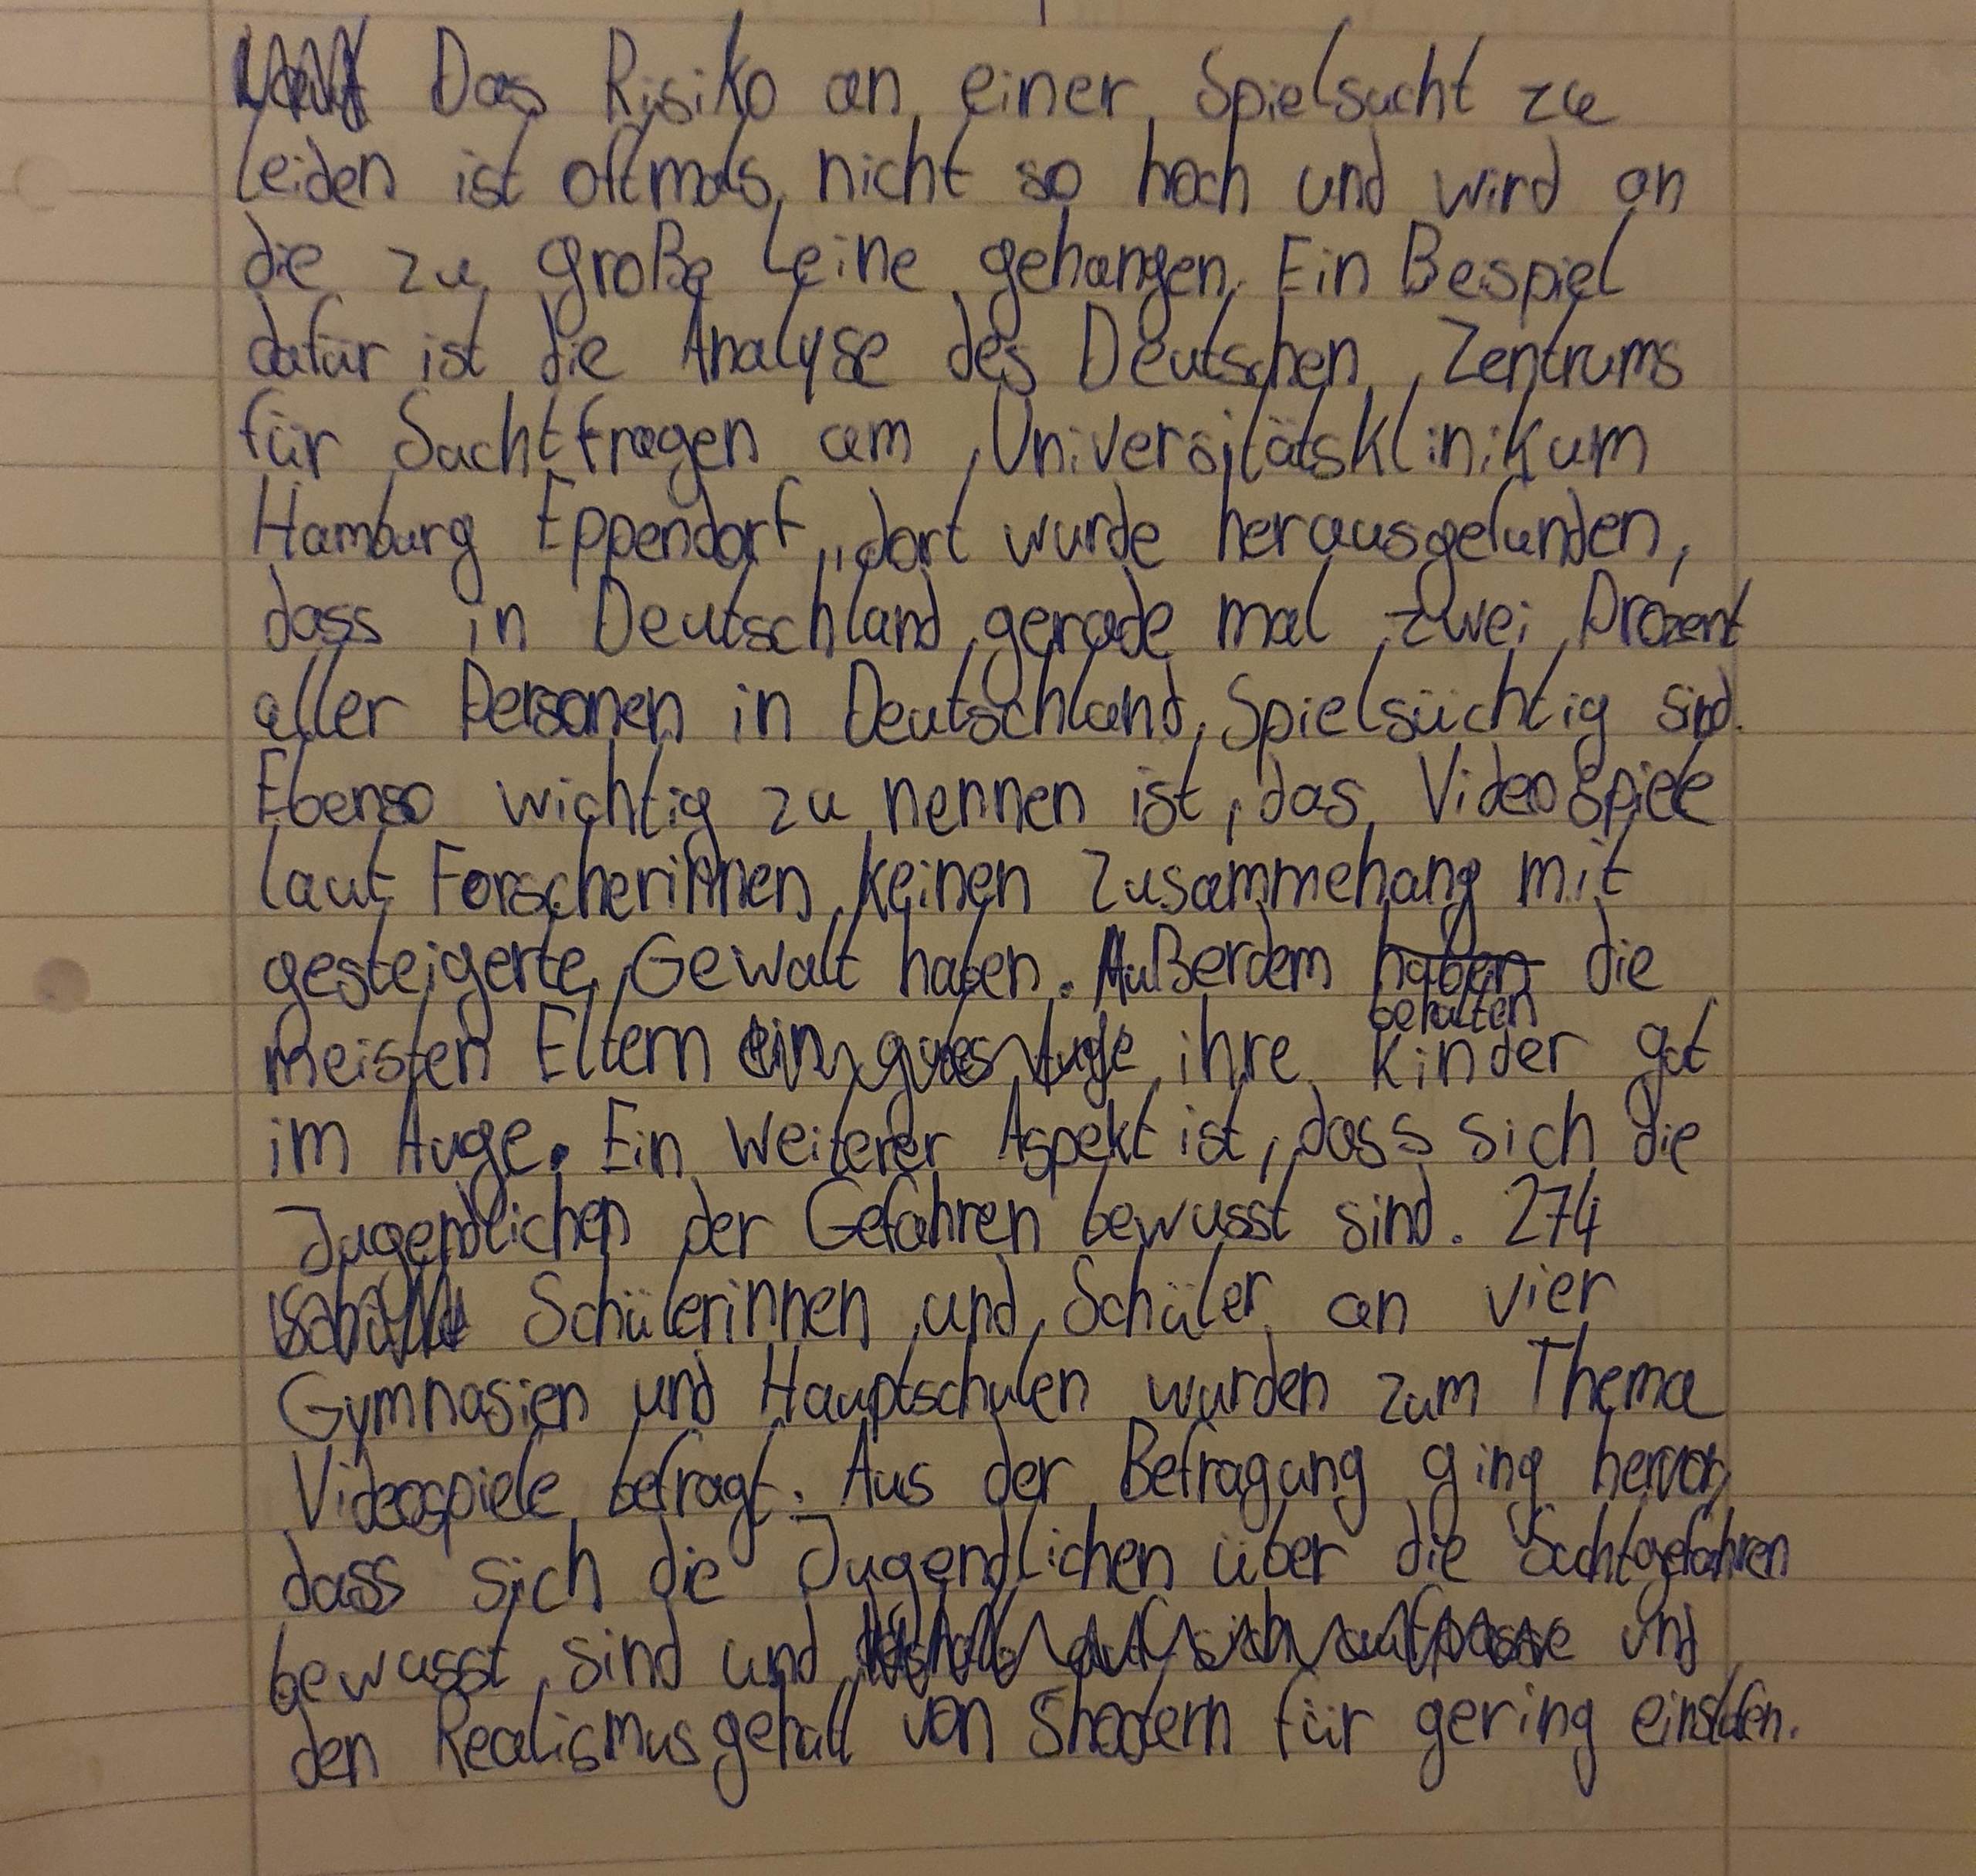 Das Risiko an einer Spielsucht zu
leiden ist oftmals nicht so hoch und wird an
die zu große Leine gehangen. Ein Bespiel
dafür ist die Analyse des Deutschen Zentrums
für Suchtfragen am Universitätsklinikum
Hamburg Eppendorf, dort wurde herausgefunden,
dass in Deutschland gerade mal zwei Prozent
aller Personen in Deutschland Spielsüchtig sind.
Ebenso wichtig zu nennen ist, das Videospiele
laut Forscherinnen keinen Zusammehang mit
gesteigerte Gewalt haben. Außerdem haben die
behalten
meisten Eltern ein gutes Auge ihre Kinder gut
im Auge. Ein weiterer Aspekt ist, dass sich die
Jugendlichen der Gefahren bewusst sind. 274
Schülerinnen und Schüler an vier
Gymnasien und Hauptschulen wurden zum Thema
Videospiele befragt. Aus der Befragung ging hervor,
dass sich die Jugendlichen über die Suchtgefahren
bewusst sind und und
den Realismusgehalt von Shootern für gering einstufen.